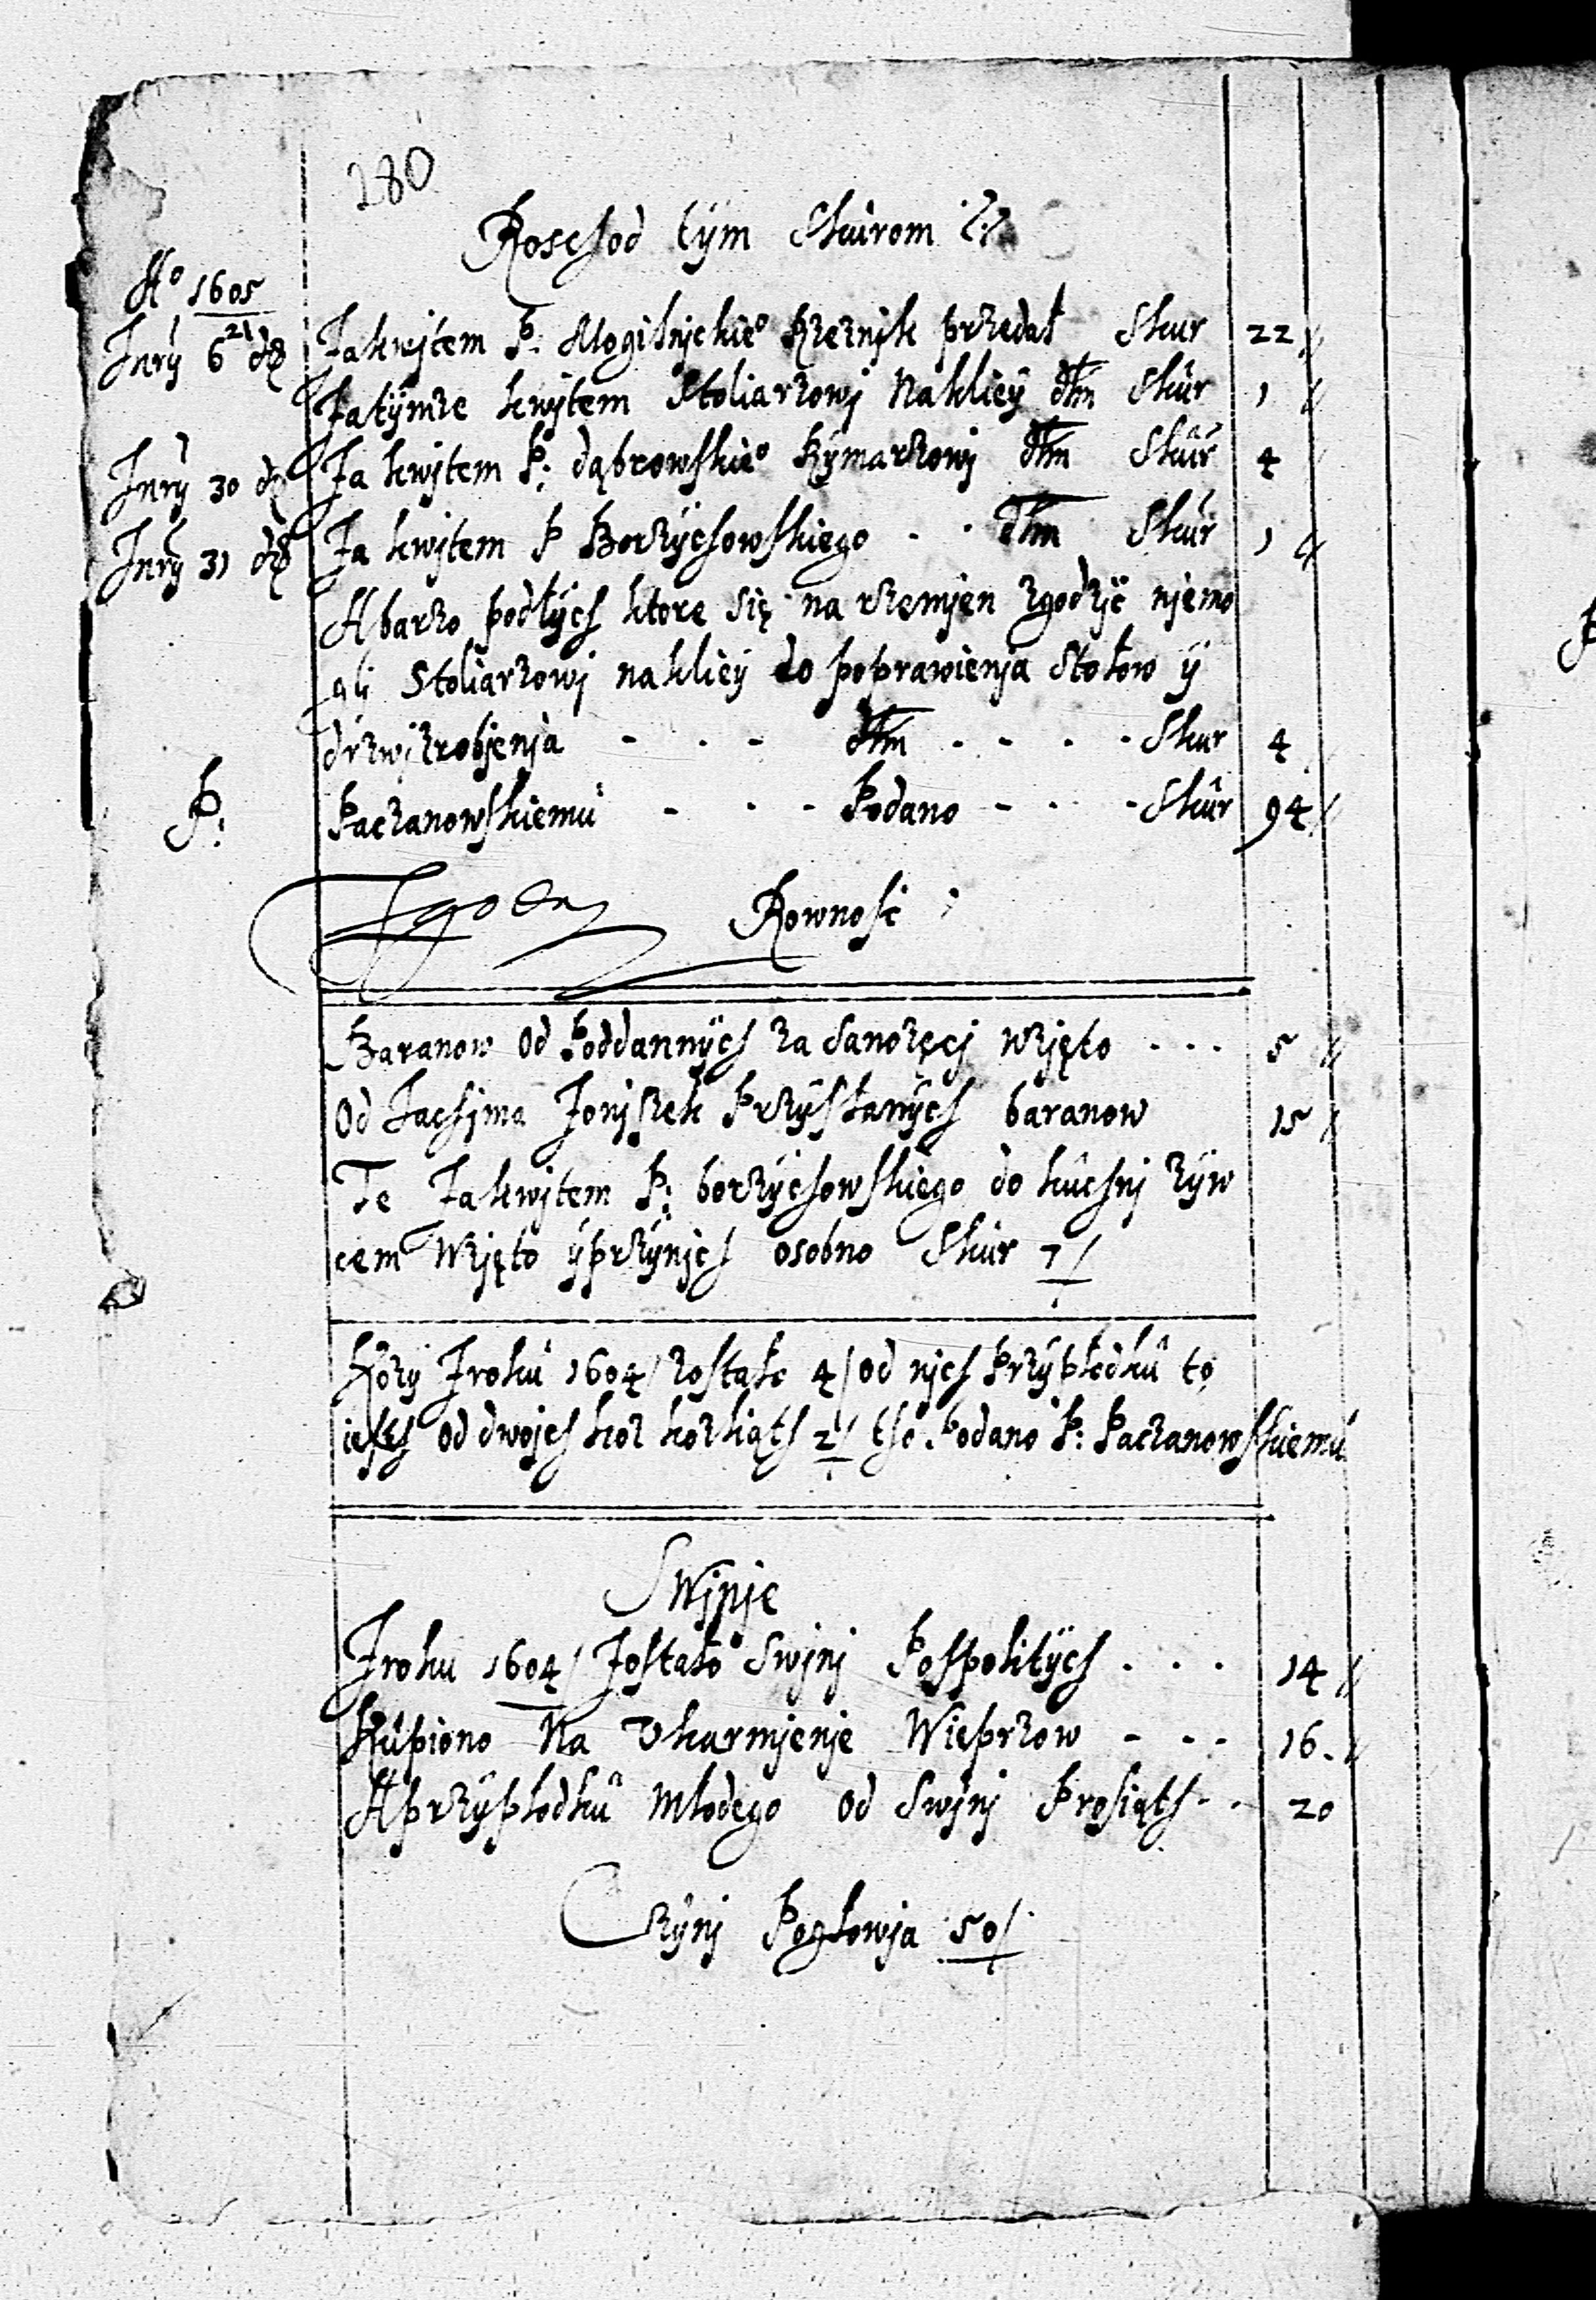 280
Roschod tym Skurom
Aº 1605
Jnrÿ 6 21 dę Za kwjtem P. Mogilnjckieº Rzeznjk przedał Skur 22
Zatÿmze kwjtem Stoliarzowj Na kliey dłm Skur 1
Jnrÿ 30 dę Za kwjtem P: dąbrowskieº Rÿmarzowj dłm Skur 4
Jnrÿ 31 dę Za kwjtem P Borzÿchowskiego - - dłm Skur 1
A barzo podłÿch ktore się na rzemjen zgodzjć njemo
gli Stoliarzowj na kliey do poprawienja Stołow ÿ
drzwj zrobjenja - - - dłm - - - - Skur 4
P: Paczanowskiemu - - - Podano - - - Skur 94
Zgodnᷓ Rownosc
Baranow Od Poddannÿch za Sanozęcj Wzjęto - - - 5
Od Jachjma Jonjszek Przÿsłanÿch baranow 15
Te Za kwjtem P: borzÿchowskiego do kuchnj zÿw
cem Wzjęto ÿ przÿ njch osobno Skur 7/
Kozÿ Zroku 1604/ zostałe 4/ od njch Przÿpłodku to
iest od dwojch koz kozliąth 2/ tho Podano P: Paczanowskiemu
Swjnje
Zroku 1604/ Zostało Swjnj Pospolitÿch - - - 14
Kupiono Na Vkarmjenje Wieprzow - - - 16
A przÿpłodku Młodego od Swjnj Prosiąth - - 20
Czÿnj Pogłowja 50/